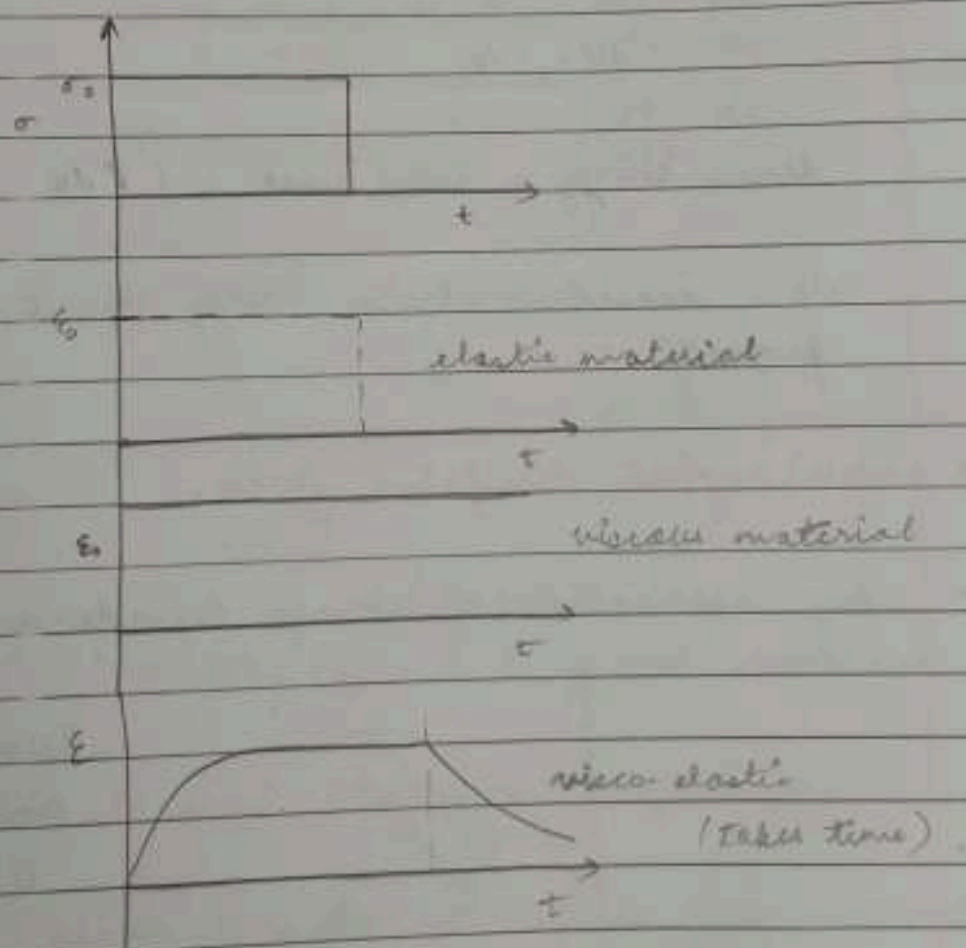 σ₀
σ
t
ε₀
elastic material
τ
ε₀
viscous material
τ
ε
visco-elastic
(takes time)
τ